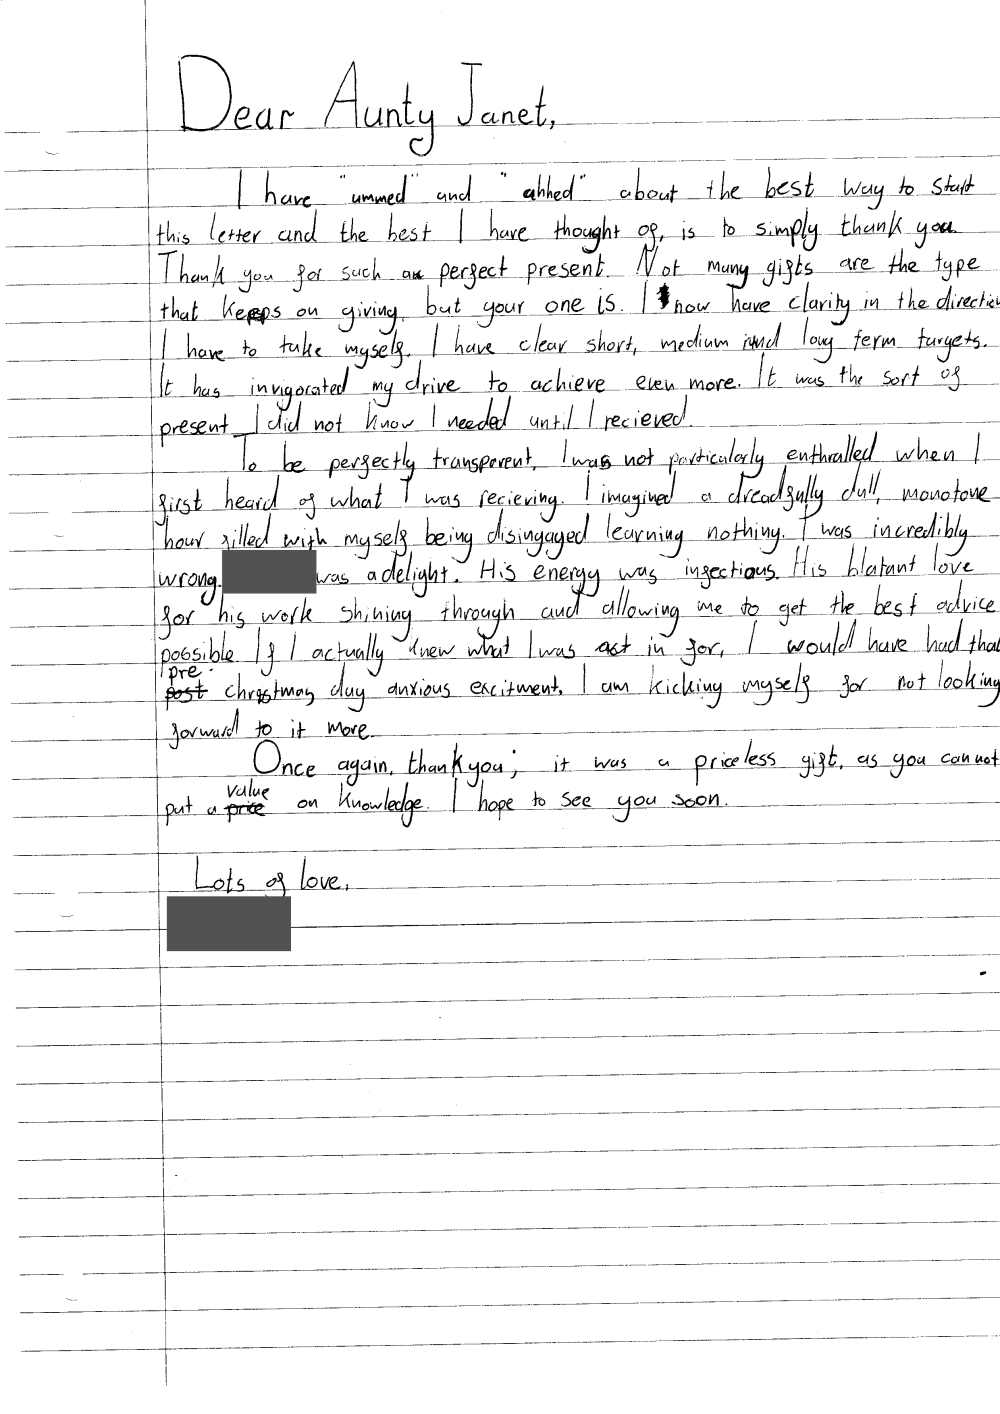 Dear Aunty Janet,
I have "ummed" and "ahhed" about the best way to start
this letter and the best I have thought of, is to simply thank you.
Thank you for such a perfect present. Not many gifts are the type
that keeps on giving, but your one is. I now have clarity in the direction
I have to take myself. I have clear short, medium and long term targets.
It has invigorated my drive to achieve even more. It was the sort of
present I did not know I needed until I recieved.
To be perfectly transparent, I was not particularly enthralled when I
first heard of what I was recieving. I imagined a dreadfully dull, monotone
hour filled with myself being disingaged learning nothing. I was incredibly
wrong. was a delight. His energy was infectious. His blatant love
for his work shining through and allowing me to get the best advice
possible. If I actually knew what I was in for, I would have had that
pre
post christmas day anxious excitment. I am kicking myself for not looking
forward to it more.
Once again, thank you; it was a priceless gift, as you cannot
value
put a price on knowledge. I hope to see you soon.
Lots of love,